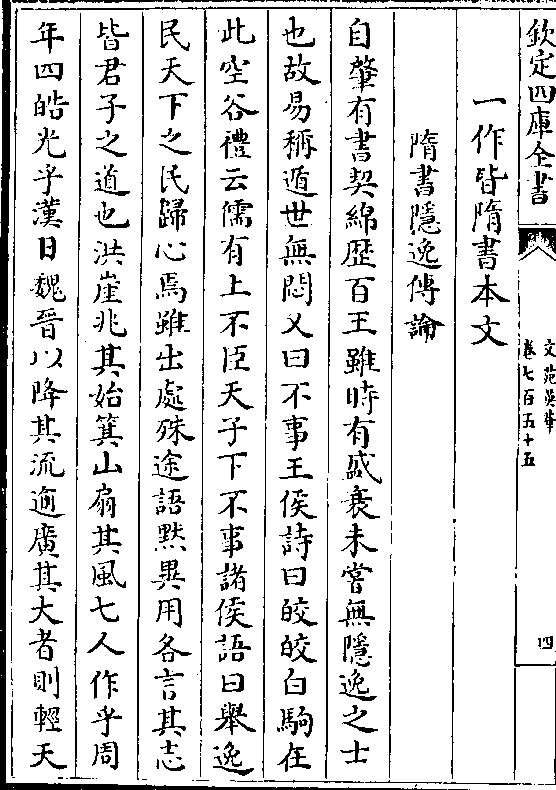 欽定四庫全書
文苑英華
卷七百五十五
四
一作皆隋書本文
隋書隱逸傳論
自肇有書契綿歴百王雖時有盛衰未嘗無隱逸之士
也故易稱遁世無悶又曰不事王侯詩曰皎皎白駒在
此空谷禮云儒有上不臣天子下不事諸侯語曰舉逸
民天下之民歸心焉雖出處殊途語黙異用各言其志
皆君子之道也洪崖兆其始箕山扇其風七人作乎周
年四皓光乎漢日魏晉以降其流逾廣其大者則輕天